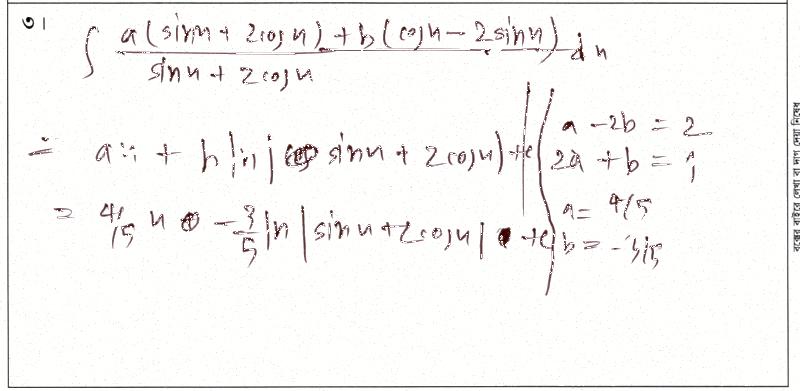 ৩।
∫ a(sinx + 2cosx) + b(cosx - 2sinx) / sinx + 2cosx dx
= ax + b ln|sinx + 2cosx| + c
a - 2b = 2
2a + b = 1
= 4/5 x - 3/5 ln|sinx + 2cosx| + c
a = 4/5
b = -3/5
বক্সের বাইরে লেখা বা দাগ দেয়া নিষেধ